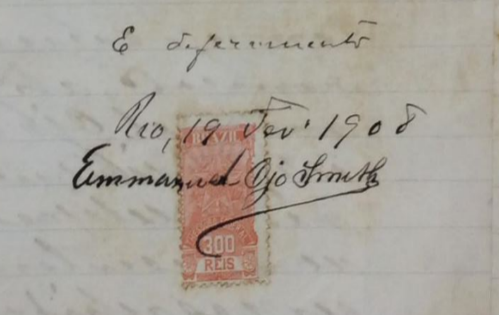 E deferimento
Rio, 19 Fev. 1908
Emmanuel Ojo Smith
BRAZIL
300
REIS